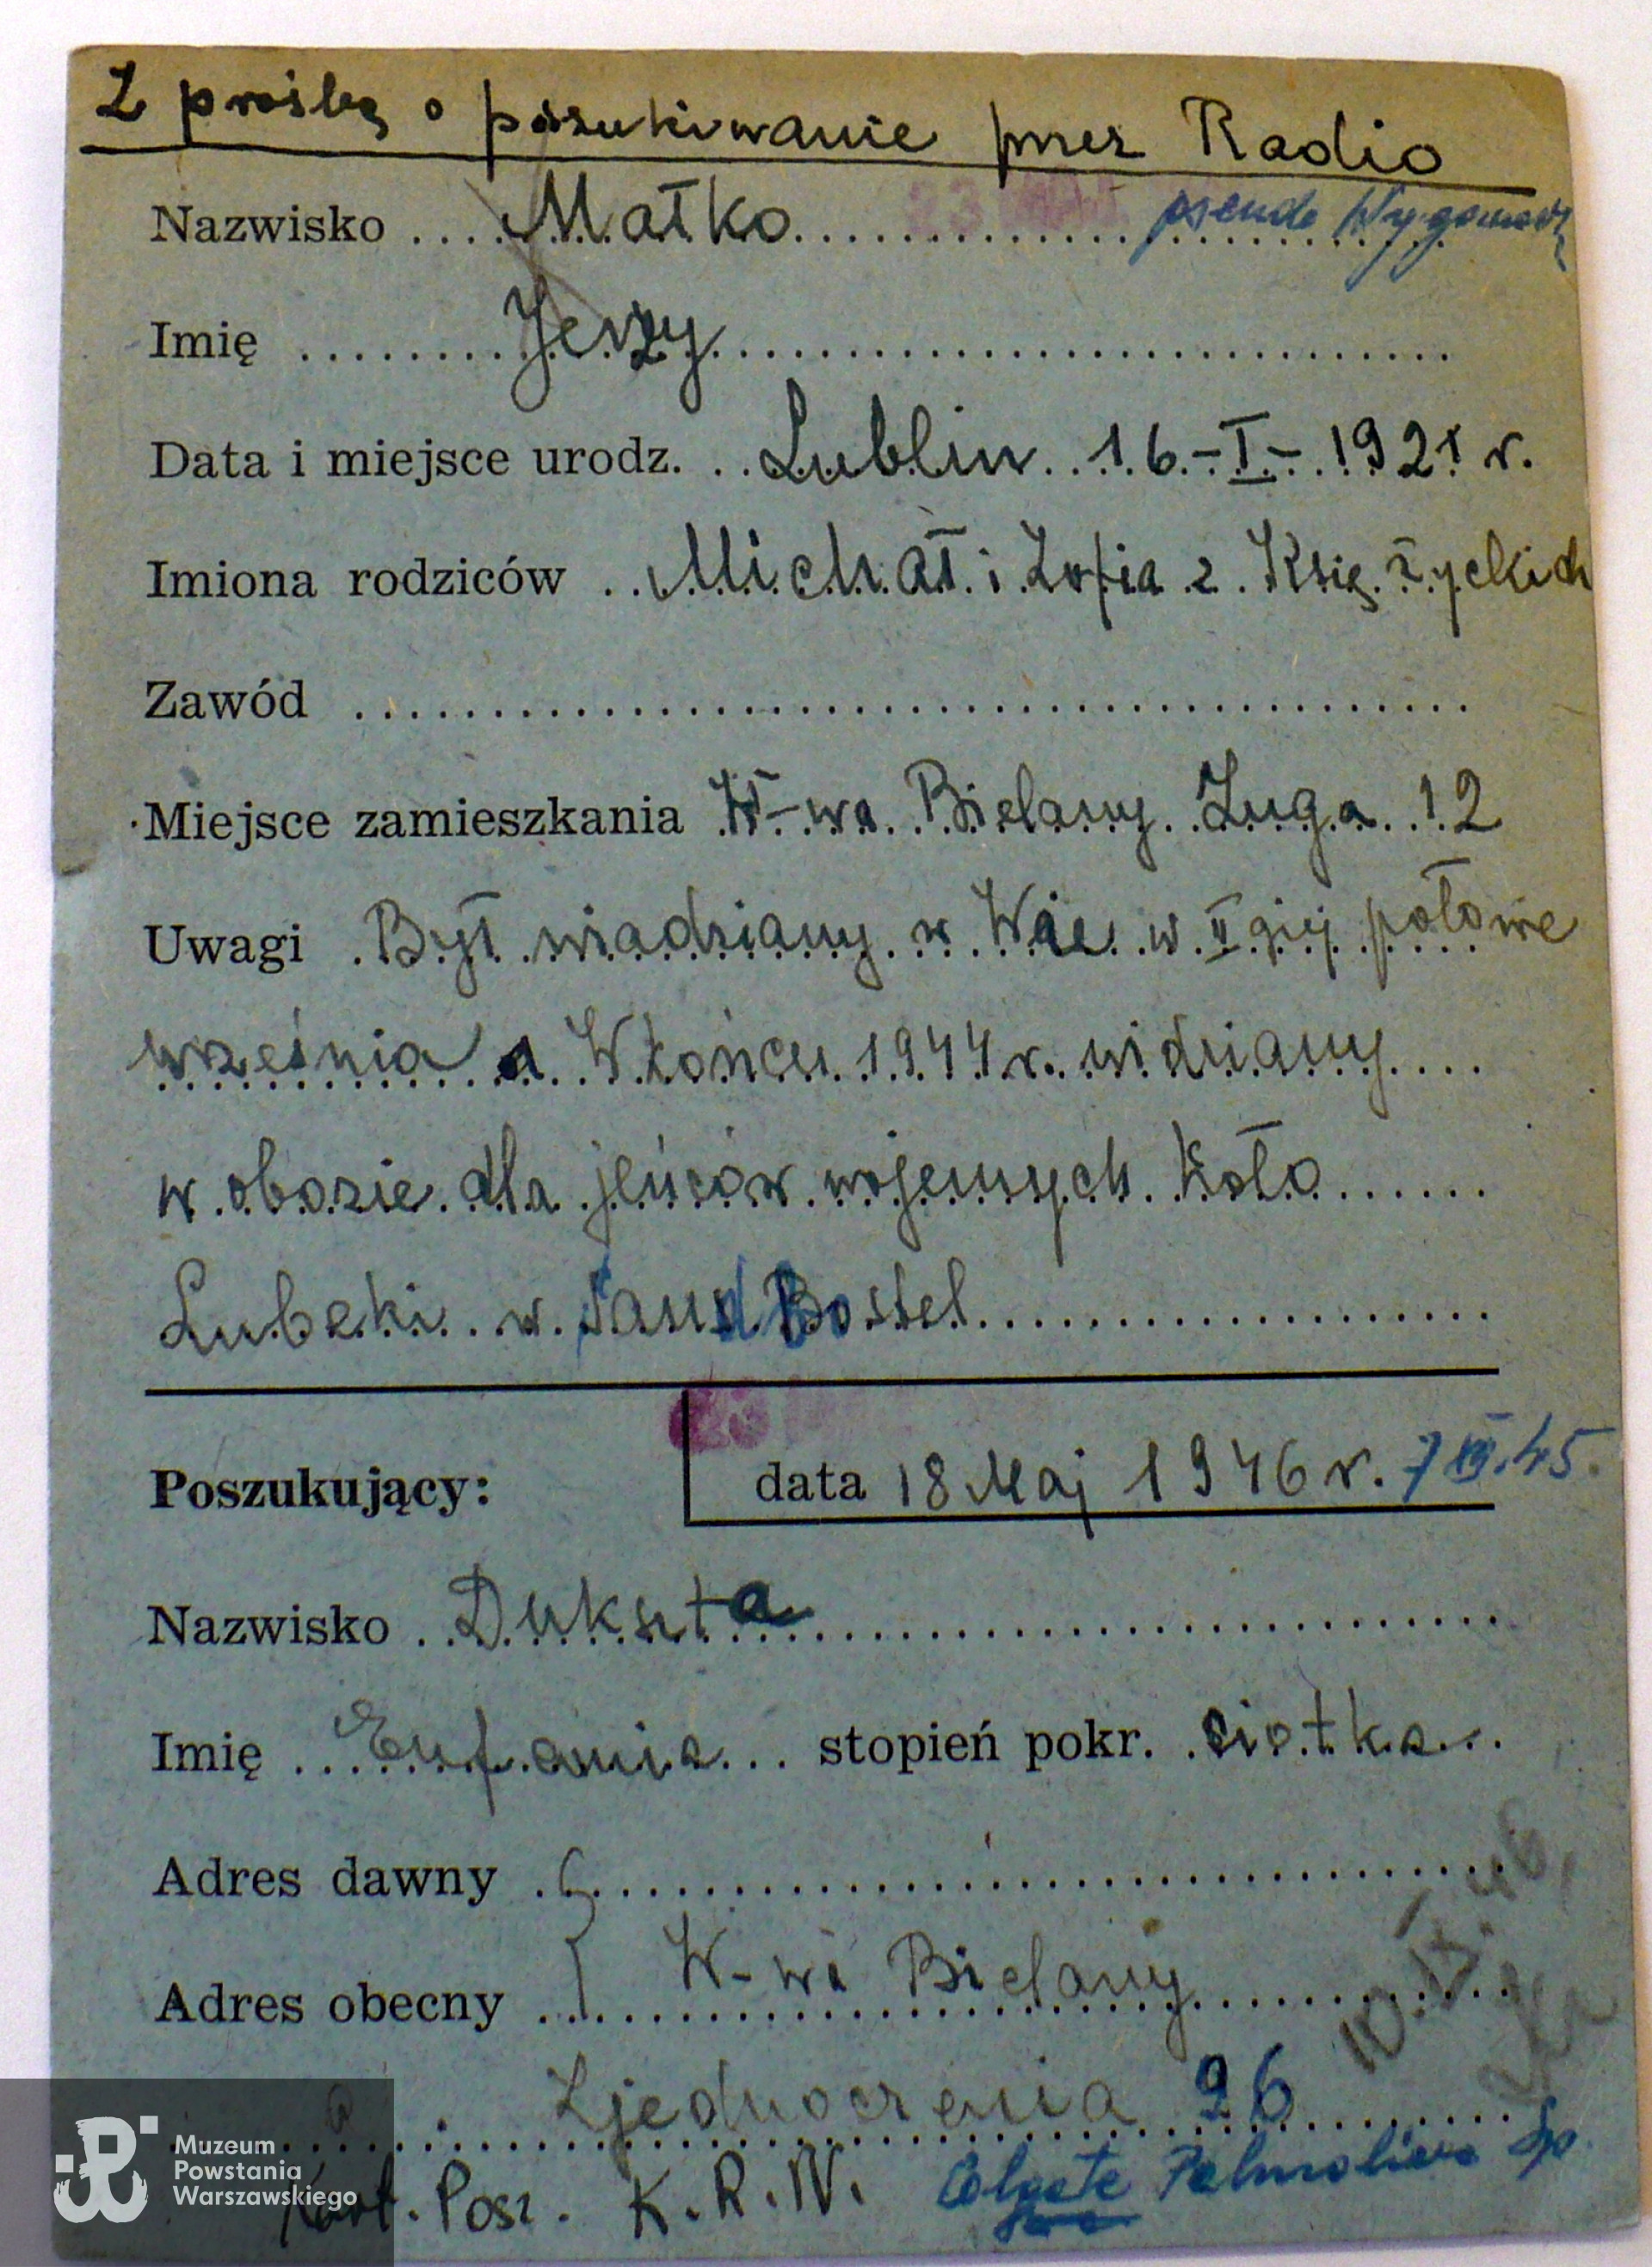 Z prośbą o poszukiwanie przez Radio
Nazwisko Małko pseudo
Imię Jerzy
Data i miejsce urodz. Lublin 16-I-1921 r.
Imiona rodziców Michał i Zofia z Księżyckich
Zawód
Miejsce zamieszkania W-wa Bielany Zuga 12
Uwagi Był wiadziany w Wie w II giej połowie
września a W końcu 1944 r. widziany
w obozie dla jeńców wojennych koło
Lubeki w Sand Bostel
23
Poszukujący: data 18 Maj 1946 r. 45.
Nazwisko Dukszta
Imię Eufamia stopień pokr. ciotka
Adres dawny
Adres obecny W-wa Bielany
Zjednoczenia 26
Kart. Posz. K.R.N. Colgate Palmolive Sp.
Muzeum
Powstania
Warszawskiego